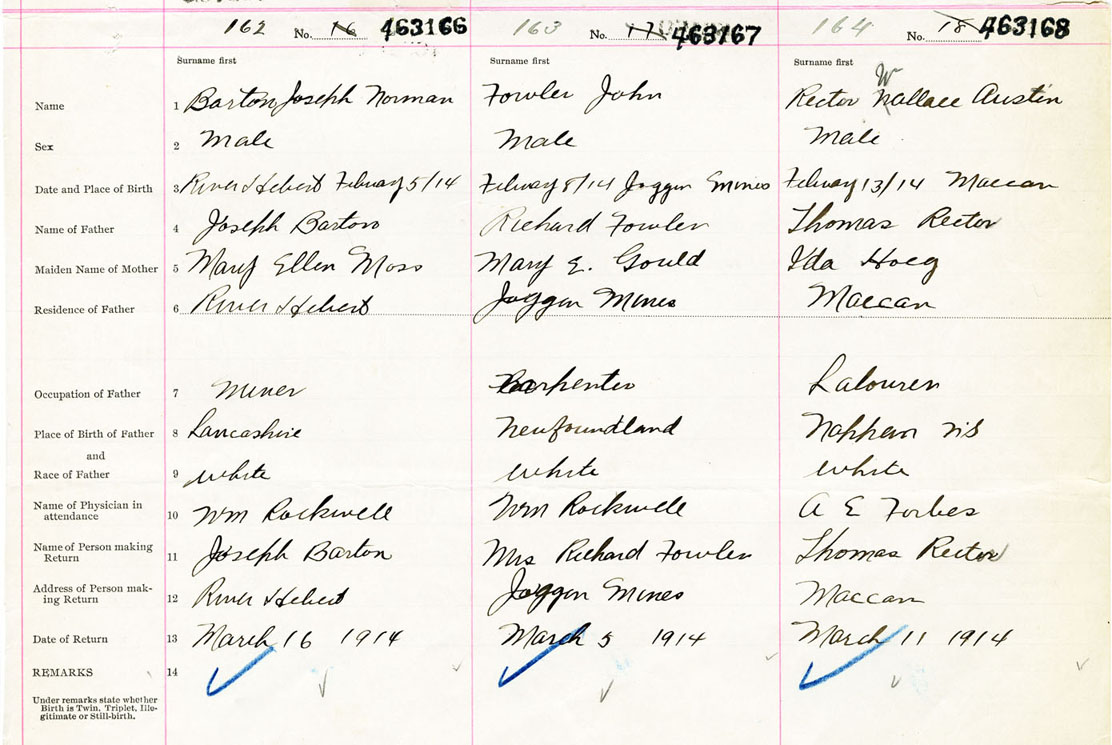 162 No. 16 463166 163 No. 17 463167 164 No. 18 463168
Surname first Surname first Surname first
W
Name 1 Barton Joseph Norman Fowler John Rector Wallace Austin
Sex 2 Male Male Male
Date and Place of Birth 3 River Hebert Febuary 5/14 Febuary 8/14 Joggin Mines Febuary 13/14 Maccan
Name of Father 4 Joseph Barton Richard Fowler Thomas Rector
Maiden Name of Mother 5 Mary Ellen Moss Mary E. Gould Ida Hoeg
Residence of Father 6 River Hebert Joggin Mines Maccan
Occupation of Father 7 Miner Carpenter Labourer
Place of Birth of Father 8 Lancashire Newfoundland Nappan NS
and
Race of Father 9 white white white
Name of Physician in
attendance 10 Wm Rockwell Wm Rockwell A E Forbes
Name of Person making
Return 11 Joseph Barton Mrs Richard Fowler Thomas Rector
Address of Person mak-
ing Return 12 River Hebert Joggin Mines Maccan
Date of Return 13 March 16 1914 March 5 1914 March 11 1914
REMARKS 14
Under remarks state whether
Birth is Twin, Triplet, Ille-
gitimate or Still-birth.